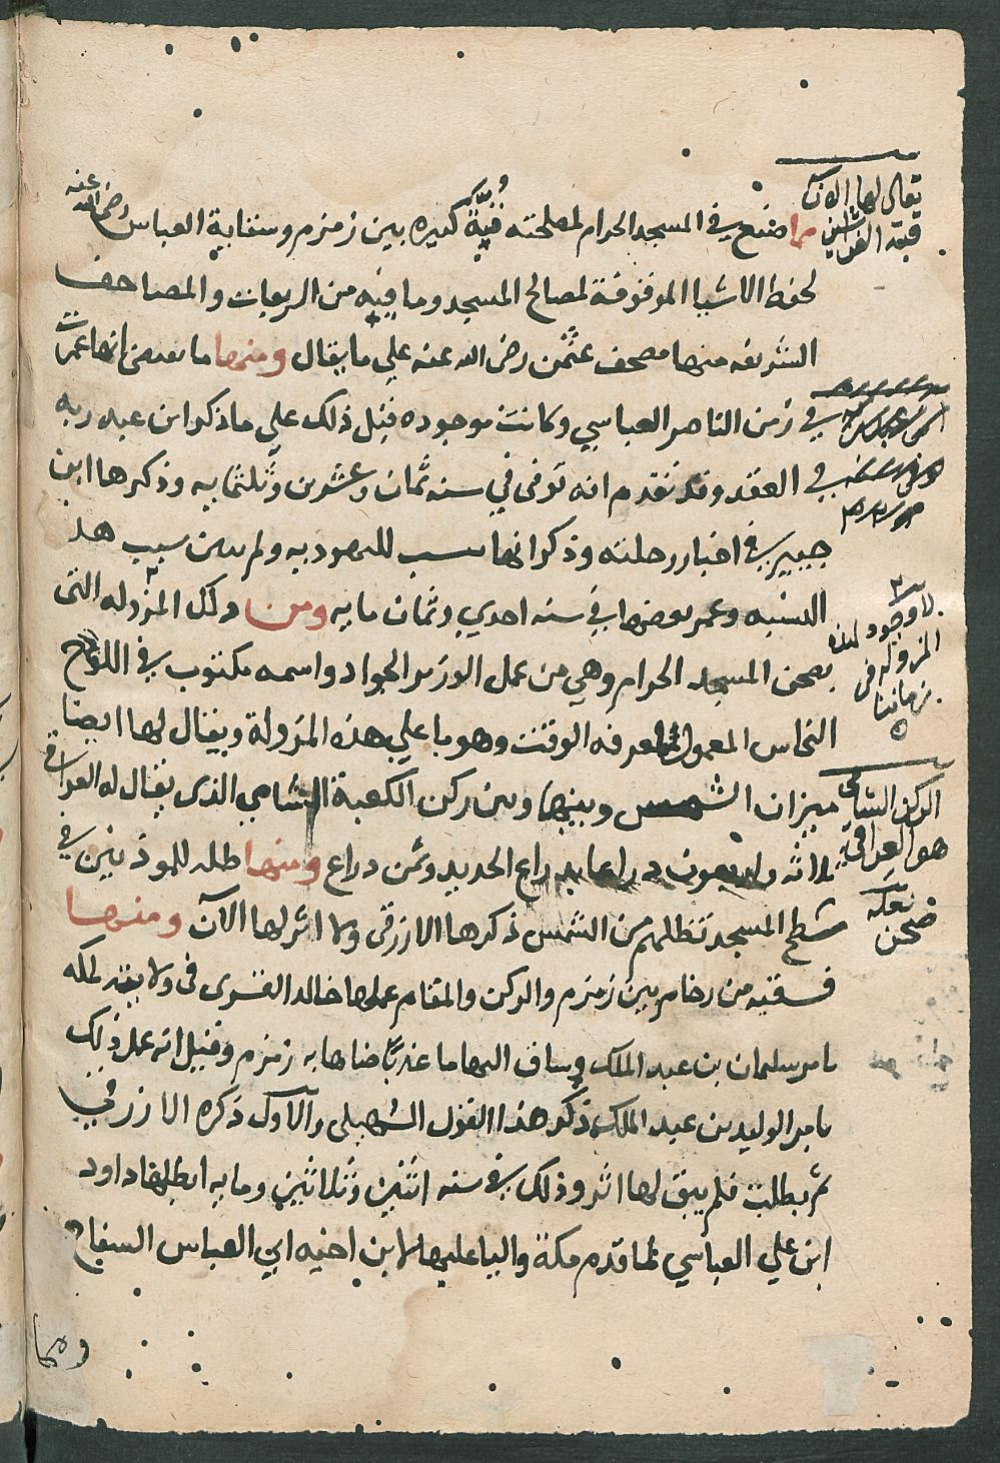 تعال لها الان
قبة الفراشين
مما صنع في المسجد الحرام لمصلحته قبة كبيره بين زمزم وسقاية العباس رضي الله عنه
لحفظ الاشيا الموقوفة لمصالح المسجد وما فيه من الربعات والمصاحف
الشريفه منها مصحف عثمن رضي الله عنه علي ما يقال ومنها ما يقتضي انها عمرت
في زمن الناصر العباسي وكانت موجوده قبل ذلك علي ما ذكر ابن عبد ربه
في العقد وقد تقدم انه توفى في سنه ثمان وعشرين وثلثمايه وذكرها ابن
جبير في اخبار رحلته وذكر انها تنسب لليهوديه ولم يبين سبب هذه
النسبه وعمر بعضها في سنه احدي وثمان مايه ومن ذلك المزوله التى
بصحن المسجد الحرام وهي من عمل الوزير الجواد واسمه مكتوب في اللوح
النحاس المعمول لمعرفه الوقت وهو باعلي هذه المزولة ويقال لها ايضا
ميزان الشمس وبينها وبين ركن الكعبة الشامي الذى يقال له العراقي
ثلاثه واربعون دراعا بدراع الحديد وثمن دراع ومنها ظله للموذنين في
سطح المسجد تظلهم من الشمس ذكرها الازرقى ولا اثر لها الآن ومنها
فسقيه من رخام بين زمزم والركن والمقام عملها خالد القسرى فى ولايته لمكه
بامر سليمان بن عبد الملك وساق اليها ما عذبا ضاها به زمزم وقيل انه عمل ذلك
بامر الوليد بن عبد الملك ذكر هذا القول السهيلى والاول ذكره الازرقي
ثم بطلت فلم يبق لها اثر وذلك في سنه اثنين وثلاثين ومايه ابطلها داود
ابن علي العباسي لما قدم مكة واليا عليها لابن اخيه ابي العباس السفاح
لا وجود لهذه
المزوله في
زماننا
الركن الشامي
هو العراقي
صحن